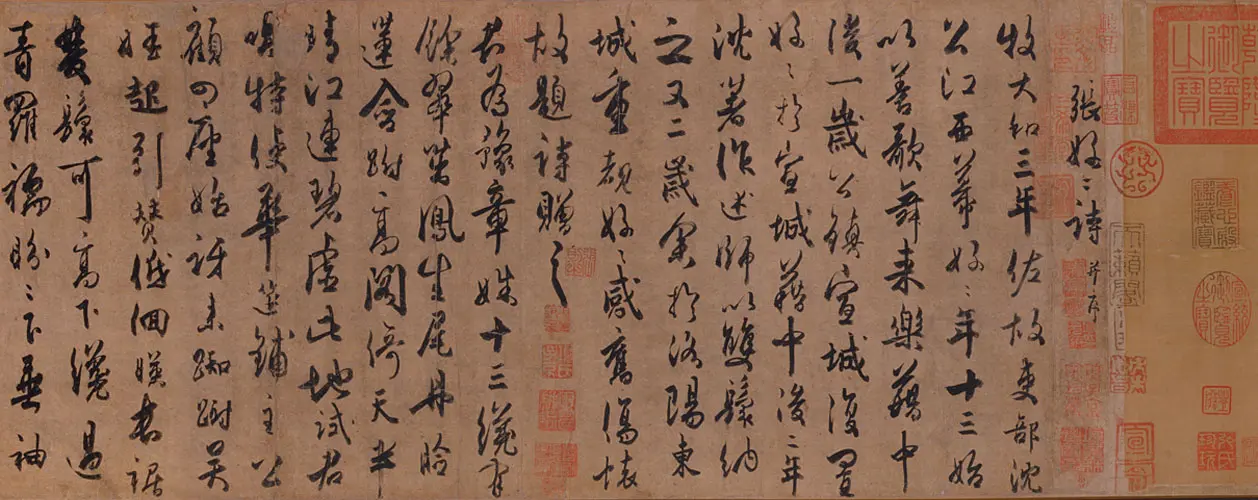 養心殿鑑藏寶
宣統御覽之寶
天籟閣
張好〻詩并序
牧大和三年佐故吏部沈
公江西幕好〻年十三始
以善歌舞来樂籍中
後一歲公鎮宣城復置
好〻扵宣城籍中後二年
沈著作述師以雙鬟納
之又二歲余扵洛陽東
城重覩好〻感舊傷懷
故題詩贈之
君為豫章姝十三纔有
餘翠茁鳳生尾丹臉
蓮含跗高閣倚天半
晴江連碧虛此地試君
唱特使華筵鋪主公
顧四座始訝来踟蹰吳
娃起引贊低佪暎長裾
雙鬟可高下纔過
青羅襦盼〻下垂袖